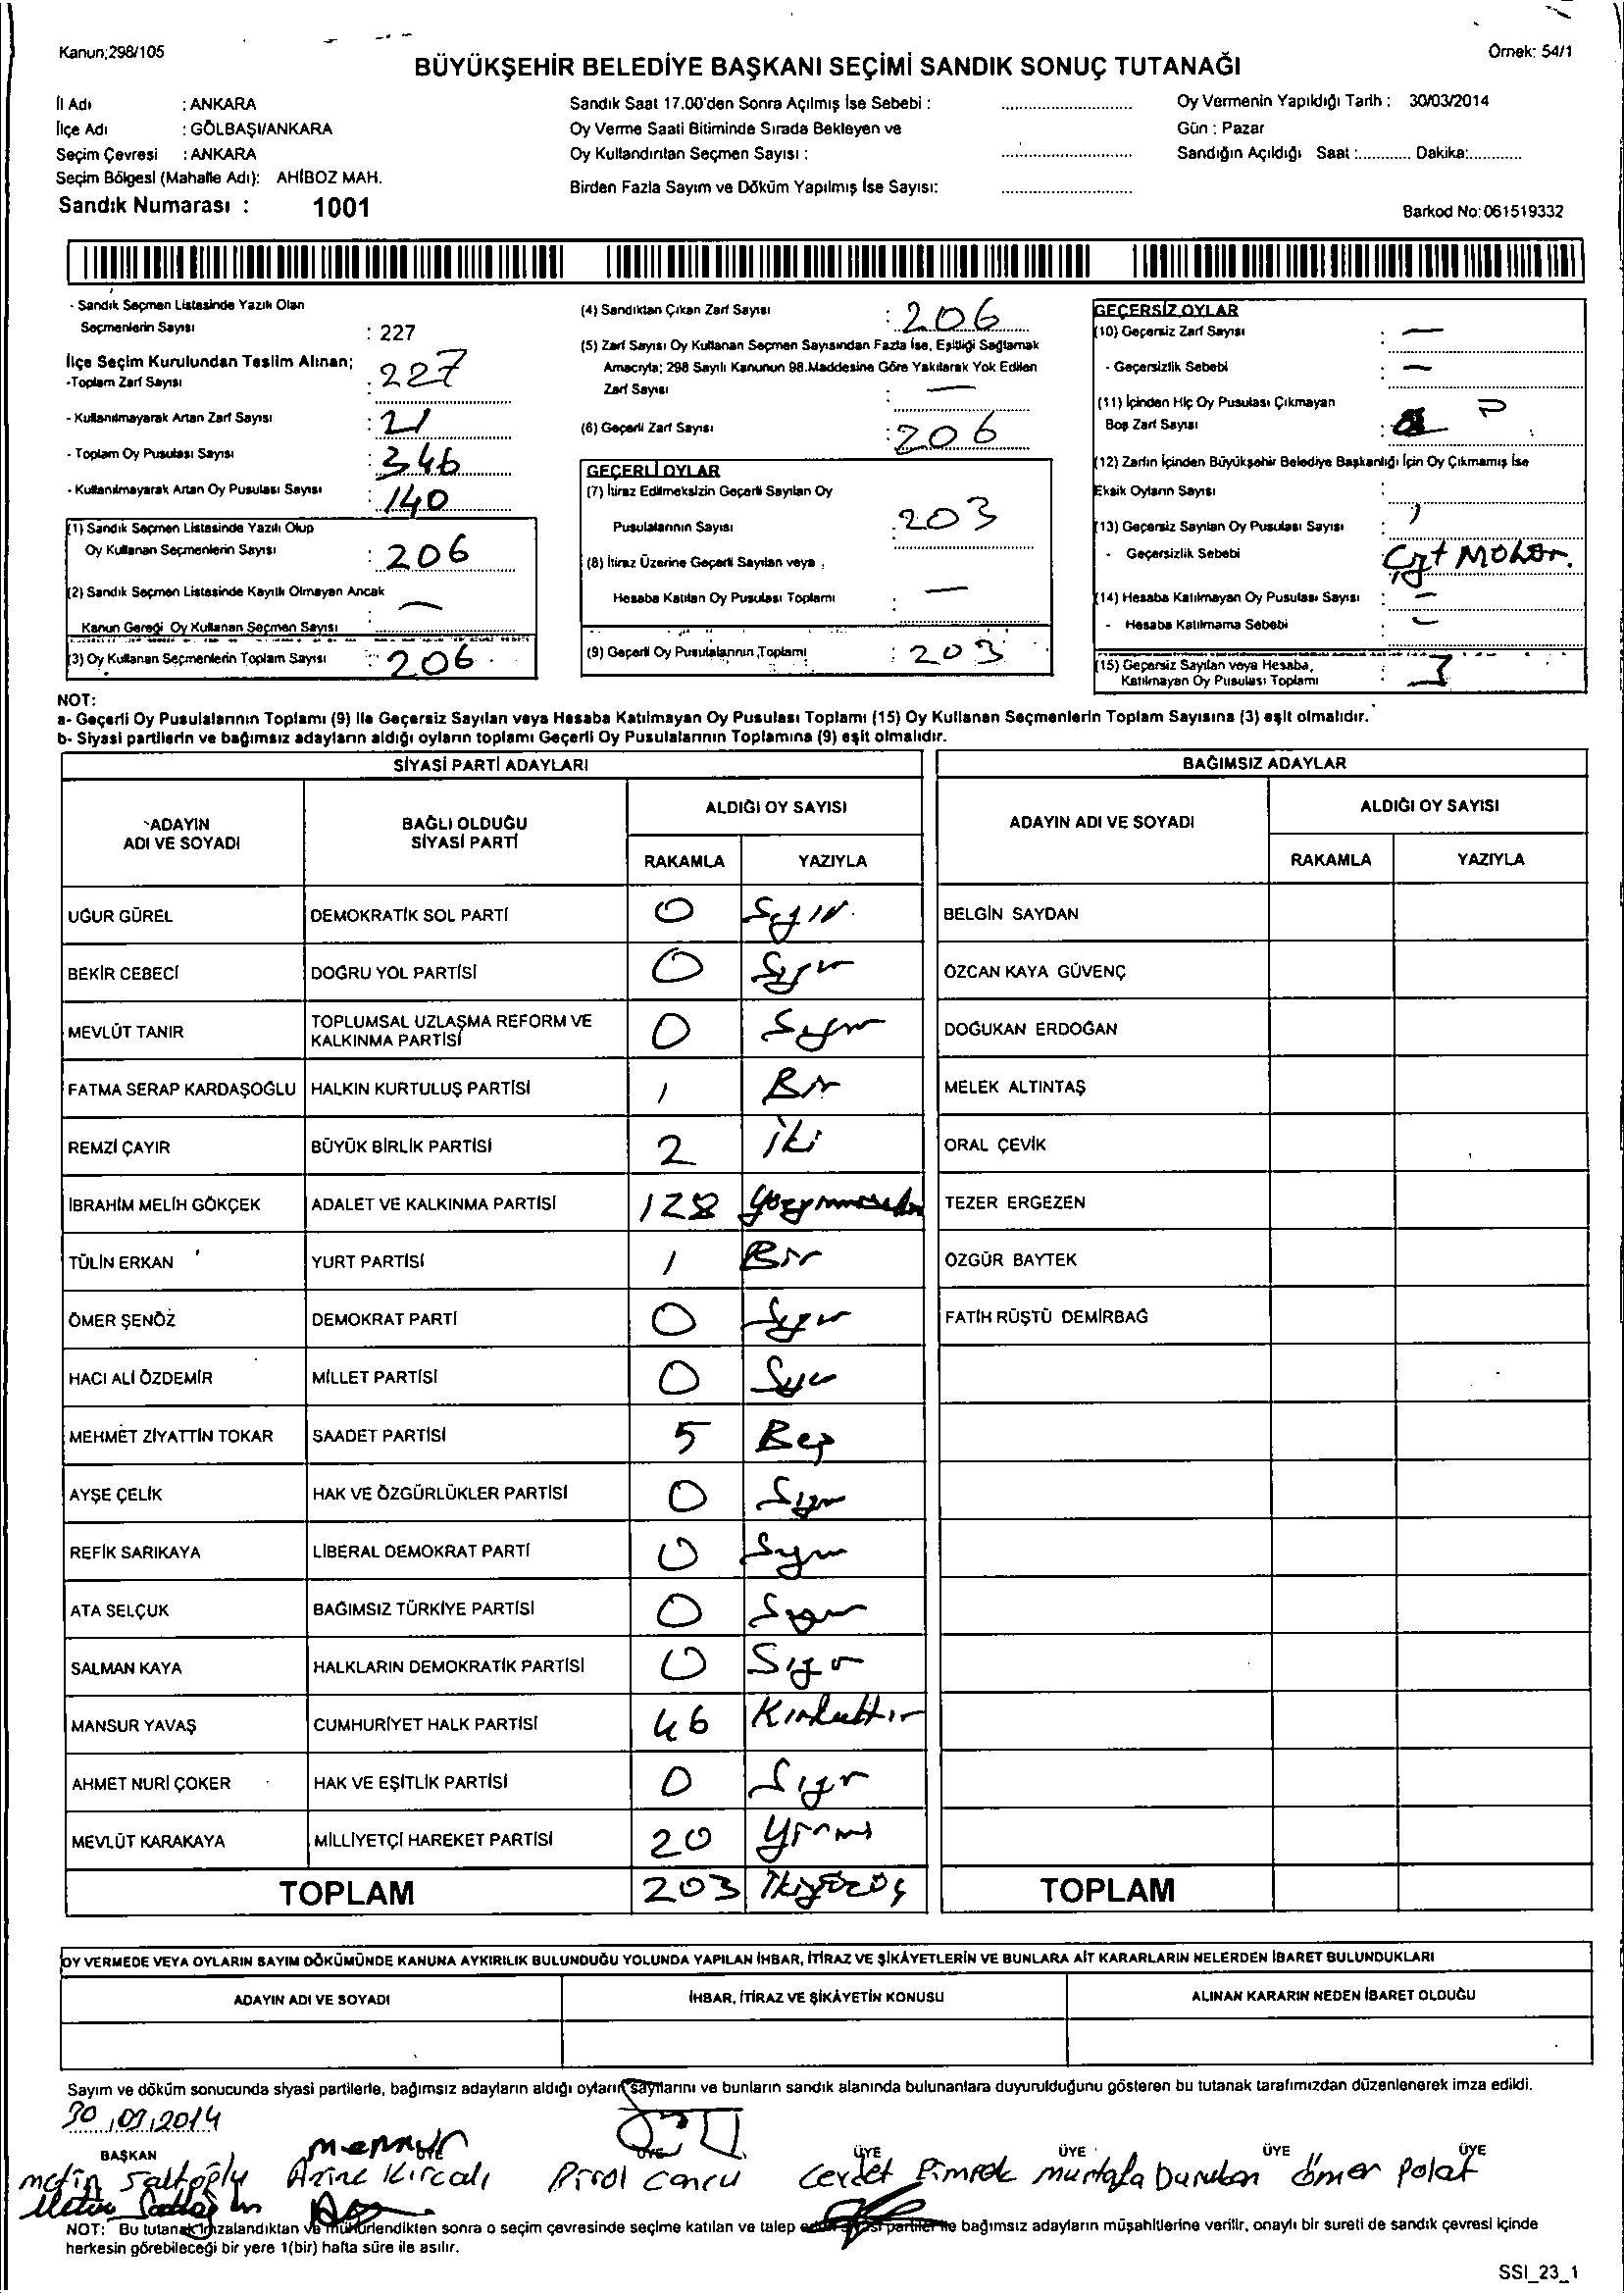 Kanun;298/105
Örnek: 54/1
BÜYÜKŞEHİR BELEDİYE BAŞKANI SEÇİMİ SANDIK SONUÇ TUTANAĞI
İl Adı : ANKARA
İlçe Adı : GÖLBAŞI/ANKARA
Seçim Çevresi : ANKARA
Seçim Bölgesi (Mahalle Adı): AHİBOZ MAH.
Sandık Numarası : 1001
Sandık Saat 17.00'den Sonra Açılmış İse Sebebi :
Oy Verme Saati Bitiminde Sırada Bekleyen ve
Oy Kullandırılan Seçmen Sayısı :
Birden Fazla Sayım ve Döküm Yapılmış İse Sayısı:
Oy Vermenin Yapıldığı Tarih : 30/03/2014
Gün : Pazar
Sandığın Açıldığı Saat :............ Dakika:............
Barkod No: 061519332
- Sandık Seçmen Listesinde Yazılı Olan
Seçmenlerin Sayısı : 227
İlçe Seçim Kurulundan Teslim Alınan;
-Toplam Zarf Sayısı : 227
- Kullanılmayarak Artan Zarf Sayısı : 21
- Toplam Oy Pusulası Sayısı : 346
- Kullanılmayarak Artan Oy Pusulası Sayısı : 140
(1) Sandık Seçmen Listesinde Yazılı Olup
Oy Kullanan Seçmenlerin Sayısı : 206
(2) Sandık Seçmen Listesinde Kayıtlı Olmayan Ancak
Kanun Gereği Oy Kullanan Seçmen Sayısı : —
(3) Oy Kullanan Seçmenlerin Toplam Sayısı : 206
(4) Sandıktan Çıkan Zarf Sayısı : 206
(5) Zarf Sayısı Oy Kullanan Seçmen Sayısından Fazla İse, Eşitliği Sağlamak
Amacıyla; 298 Sayılı Kanunun 98.Maddesine Göre Yakılarak Yok Edilen
Zarf Sayısı : —
(6) Geçerli Zarf Sayısı : 206
GEÇERLİ OYLAR
(7) İtiraz Edilmeksizin Geçerli Sayılan Oy
Pusulalarının Sayısı : 203
(8) İtiraz Üzerine Geçerli Sayılan veya
Hesaba Katılan Oy Pusulası Toplamı : —
(9) Geçerli Oy Pusulalarının Toplamı : 203
GEÇERSİZ OYLAR
(10) Geçersiz Zarf Sayısı : —
- Geçersizlik Sebebi : —
(11) İçinden Hiç Oy Pusulası Çıkmayan
Boş Zarf Sayısı :
(12) Zarfın İçinden Büyükşehir Belediye Başkanlığı İçin Oy Çıkmamış İse
Eksik Oyların Sayısı :
(13) Geçersiz Sayılan Oy Pusulası Sayısı :
- Geçersizlik Sebebi :
(14) Hesaba Katılmayan Oy Pusulası Sayısı : —
- Hesaba Katılmama Sebebi : —
(15) Geçersiz Sayılan veya Hesaba
Katılmayan Oy Pusulası Toplamı : 3
NOT:
a- Geçerli Oy Pusulalarının Toplamı (9) ile Geçersiz Sayılan veya Hesaba Katılmayan Oy Pusulası Toplamı (15) Oy Kullanan Seçmenlerin Toplam Sayısına (3) eşit olmalıdır.
b- Siyasi partilerin ve bağımsız adayların aldığı oyların toplamı Geçerli Oy Pusulalarının Toplamına (9) eşit olmalıdır.
SİYASİ PARTİ ADAYLARI
ADAYIN ADI VE SOYADI
BAĞLI OLDUĞU SİYASİ PARTİ
ALDIĞI OY SAYISI
RAKAMLA YAZIYLA
UĞUR GÜREL DEMOKRATİK SOL PARTİ 0 Sıfır
BEKİR CEBECİ DOĞRU YOL PARTİSİ 0 Sıfır
MEVLÜT TANIR TOPLUMSAL UZLAŞMA REFORM VE KALKINMA PARTİSİ 0 Sıfır
FATMA SERAP KARDAŞOĞLU HALKIN KURTULUŞ PARTİSİ 1 Bir
REMZİ ÇAYIR BÜYÜK BİRLİK PARTİSİ 2 iki
İBRAHİM MELİH GÖKÇEK ADALET VE KALKINMA PARTİSİ 128
TÜLİN ERKAN YURT PARTİSİ 1 Bir
ÖMER ŞENÖZ DEMOKRAT PARTİ 0 Sıfır
HACI ALİ ÖZDEMİR MİLLET PARTİSİ 0 Sıfır
MEHMET ZİYATTİN TOKAR SAADET PARTİSİ 5 Beş
AYŞE ÇELİK HAK VE ÖZGÜRLÜKLER PARTİSİ 0 Sıfır
REFİK SARIKAYA LİBERAL DEMOKRAT PARTİ 0 Sıfır
ATA SELÇUK BAĞIMSIZ TÜRKİYE PARTİSİ 0 Sıfır
SALMAN KAYA HALKLARIN DEMOKRATİK PARTİSİ 0 Sıfır
MANSUR YAVAŞ CUMHURİYET HALK PARTİSİ 46 Kırkaltı
AHMET NURİ ÇOKER HAK VE EŞİTLİK PARTİSİ 0 Sıfır
MEVLÜT KARAKAYA MİLLİYETÇİ HAREKET PARTİSİ 20 Yirmi
TOPLAM 203 İkiyüzüç
BAĞIMSIZ ADAYLAR
ADAYIN ADI VE SOYADI
ALDIĞI OY SAYISI
RAKAMLA YAZIYLA
BELGİN SAYDAN
ÖZCAN KAYA GÜVENÇ
DOĞUKAN ERDOĞAN
MELEK ALTINTAŞ
ORAL ÇEVİK
TEZER ERGEZEN
ÖZGÜR BAYTEK
FATİH RÜŞTÜ DEMİRBAĞ
TOPLAM
OY VERMEDE VEYA OYLARIN SAYIM DÖKÜMÜNDE KANUNA AYKIRILIK BULUNDUĞU YOLUNDA YAPILAN İHBAR, İTİRAZ VE ŞİKÂYETLERİN VE BUNLARA AİT KARARLARIN NELERDEN İBARET BULUNDUKLARI
ADAYIN ADI VE SOYADI
İHBAR, İTİRAZ VE ŞİKÂYETİN KONUSU
ALINAN KARARIN NEDEN İBARET OLDUĞU
Sayım ve döküm sonucunda siyasi partilerle, bağımsız adayların aldığı oyların sayılarını ve bunların sandık alanında bulunanlara duyurulduğunu gösteren bu tutanak tarafımızdan düzenlenerek imza edildi.
30.03.2014
BAŞKAN ÜYE ÜYE ÜYE ÜYE ÜYE ÜYE
metin Azine Kırcalı Birol Cevdet mustafa ömer Polat
NOT: Bu tutanak imzalandıktan ve mühürlendikten sonra o seçim çevresinde seçime katılan ve talep eden siyasi partiler ile bağımsız adayların müşahitlerine verilir, onaylı bir sureti de sandık çevresi içinde
herkesin görebileceği bir yere 1(bir) hafta süre ile asılır.
SSI_23_1